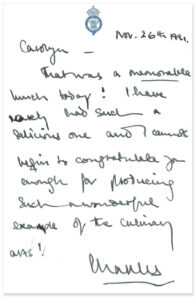 Nov. 26th 1991.
Carolyn –
That was a memorable
lunch today! I have
rarely had such a
delicious one and I cannot
begin to congratulate you
enough for producing
such a wonderful
example of the culinary
arts!
Charles